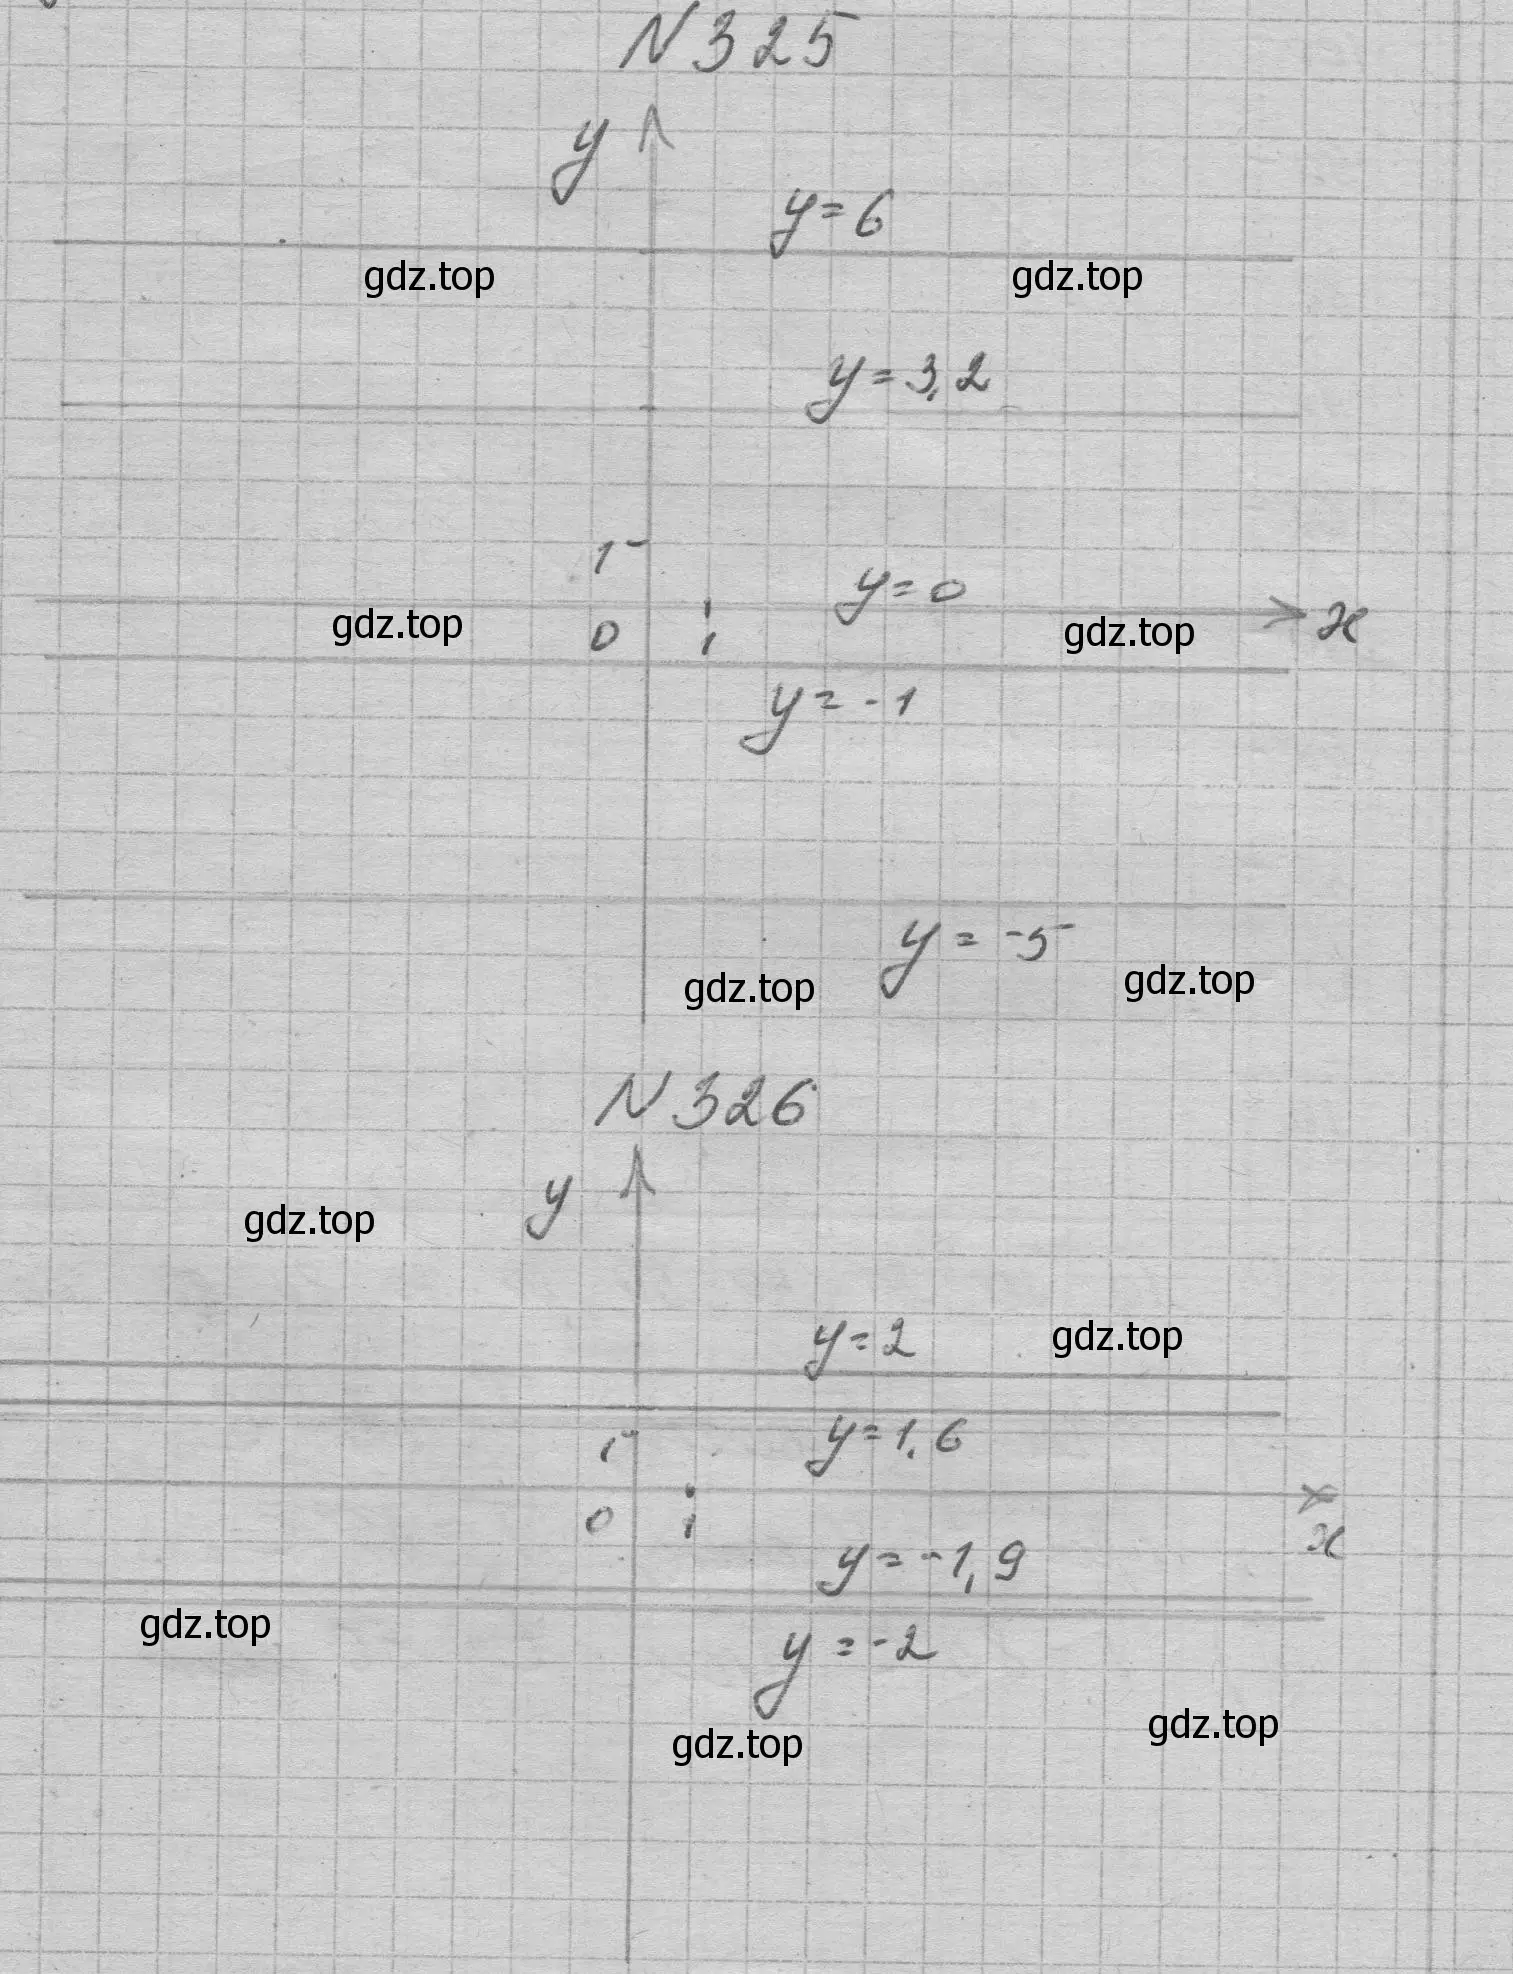 N 325
y
y = 6
gdz.top gdz.top
y = 3,2
1
y = 0
gdz.top 0 1 gdz.top x
y = -1
y = -5
gdz.top gdz.top
N 326
y
gdz.top
y = 2 gdz.top
y = 1,6
1
0 1 x
y = -1,9
gdz.top
y = -2
gdz.top gdz.top